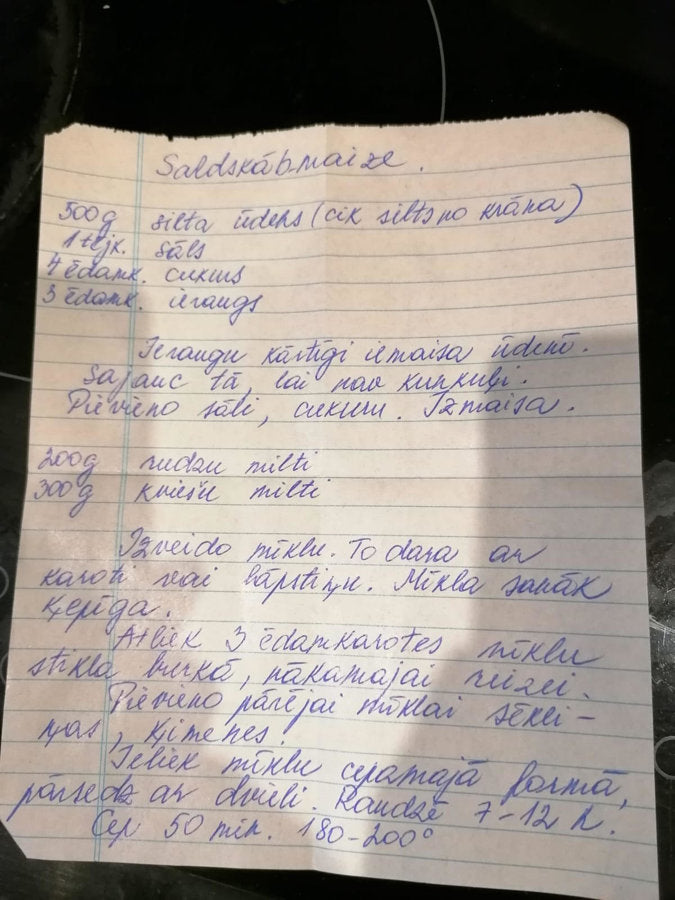 Saldskābmaize.
500g silta ūdens (cik silts no krāna)
1 tējk. sāls
4 ēdamk. cukurs
3 ēdamk. ieraugs
Ieraugu kārtīgi iemaisa ūdenī.
Sajauc tā, lai nav kunkuļi.
Pievieno sāli, cukuru. Izmaisa.
200g rudzu milti
300g kviešu milti
Izveido mīklu. To dara ar
karoti vai lāpstiņu. Mīkla sanāk
ķepīga.
Atliek 3 ēdamkarotes mīklu
stikla burkā, nākamajai reizei.
Pievieno pārējai mīklai sēkli-
ņas, ķimenes.
Ieliek mīklu cepamajā formā,
pārsedz ar dvieli. Raudzē 7-12 h.
Cep 50 min. 180-200°